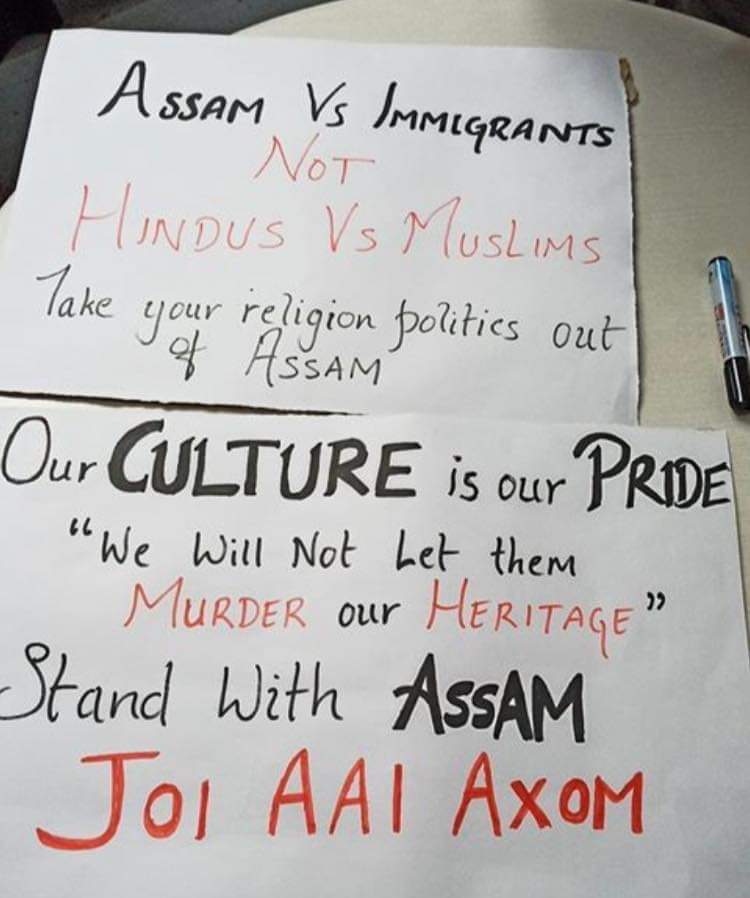 Assam Vs Immigrants
Not
Hindus Vs Muslims
Take your religion politics out
of Assam
Our CULTURE is our PRIDE
"We Will Not Let them
MURDER our HERITAGE"
Stand With ASSAM
JOI AAI AXOM